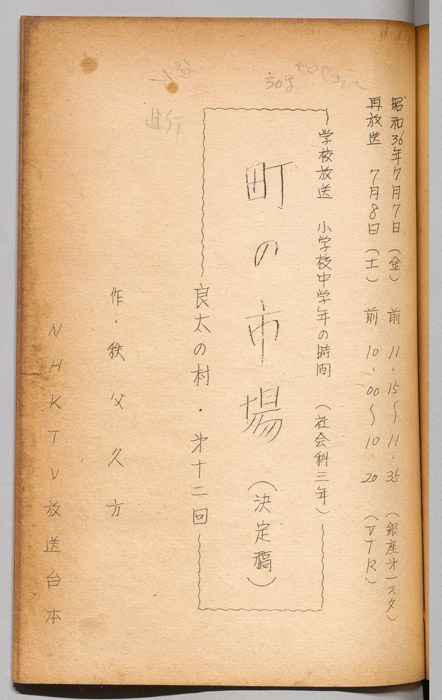 昭和36年7月7日(金) 前 11.15〜11.35 (銀座オ一スタ)
再放送 7月8日(土) 前 10.00〜10.20 (VTR)
学校放送 小学校中学年の時間 (社会科三年)
町の市場 (決定稿)
良太の村・オ十二回
作・秩父久方
NHKTV放送台本